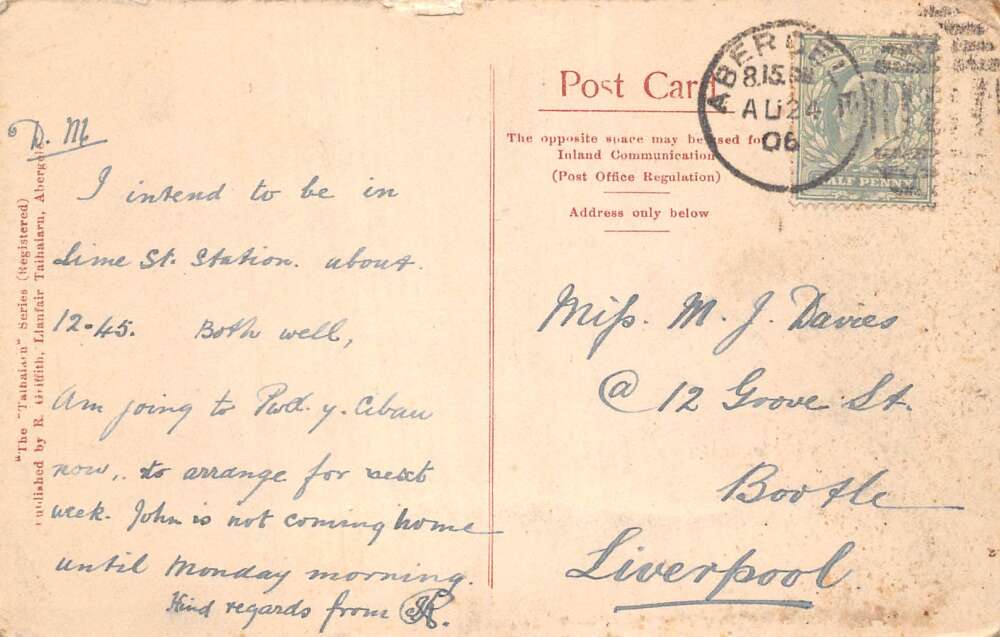 Post Card
The opposite space may be used for
Inland Communication
(Post Office Regulation)
Address only below
ABERGELE
8.15 PM
AU 24
06
HALF PENNY
D. M
I intend to be in
Lime St. Station. about
12.45. Both well,
Am going to Pwd. y. Ciban
now, to arrange for next
week. John is not coming home
until Monday morning.
Kind regards from
Miss. M. J. Davies
@ 12 Grove St.
Bootle
Liverpool.
"The "Talhaiarn" Series (Registered)
Published by R. Griffith, Llanfair Talhaiarn, Abergele